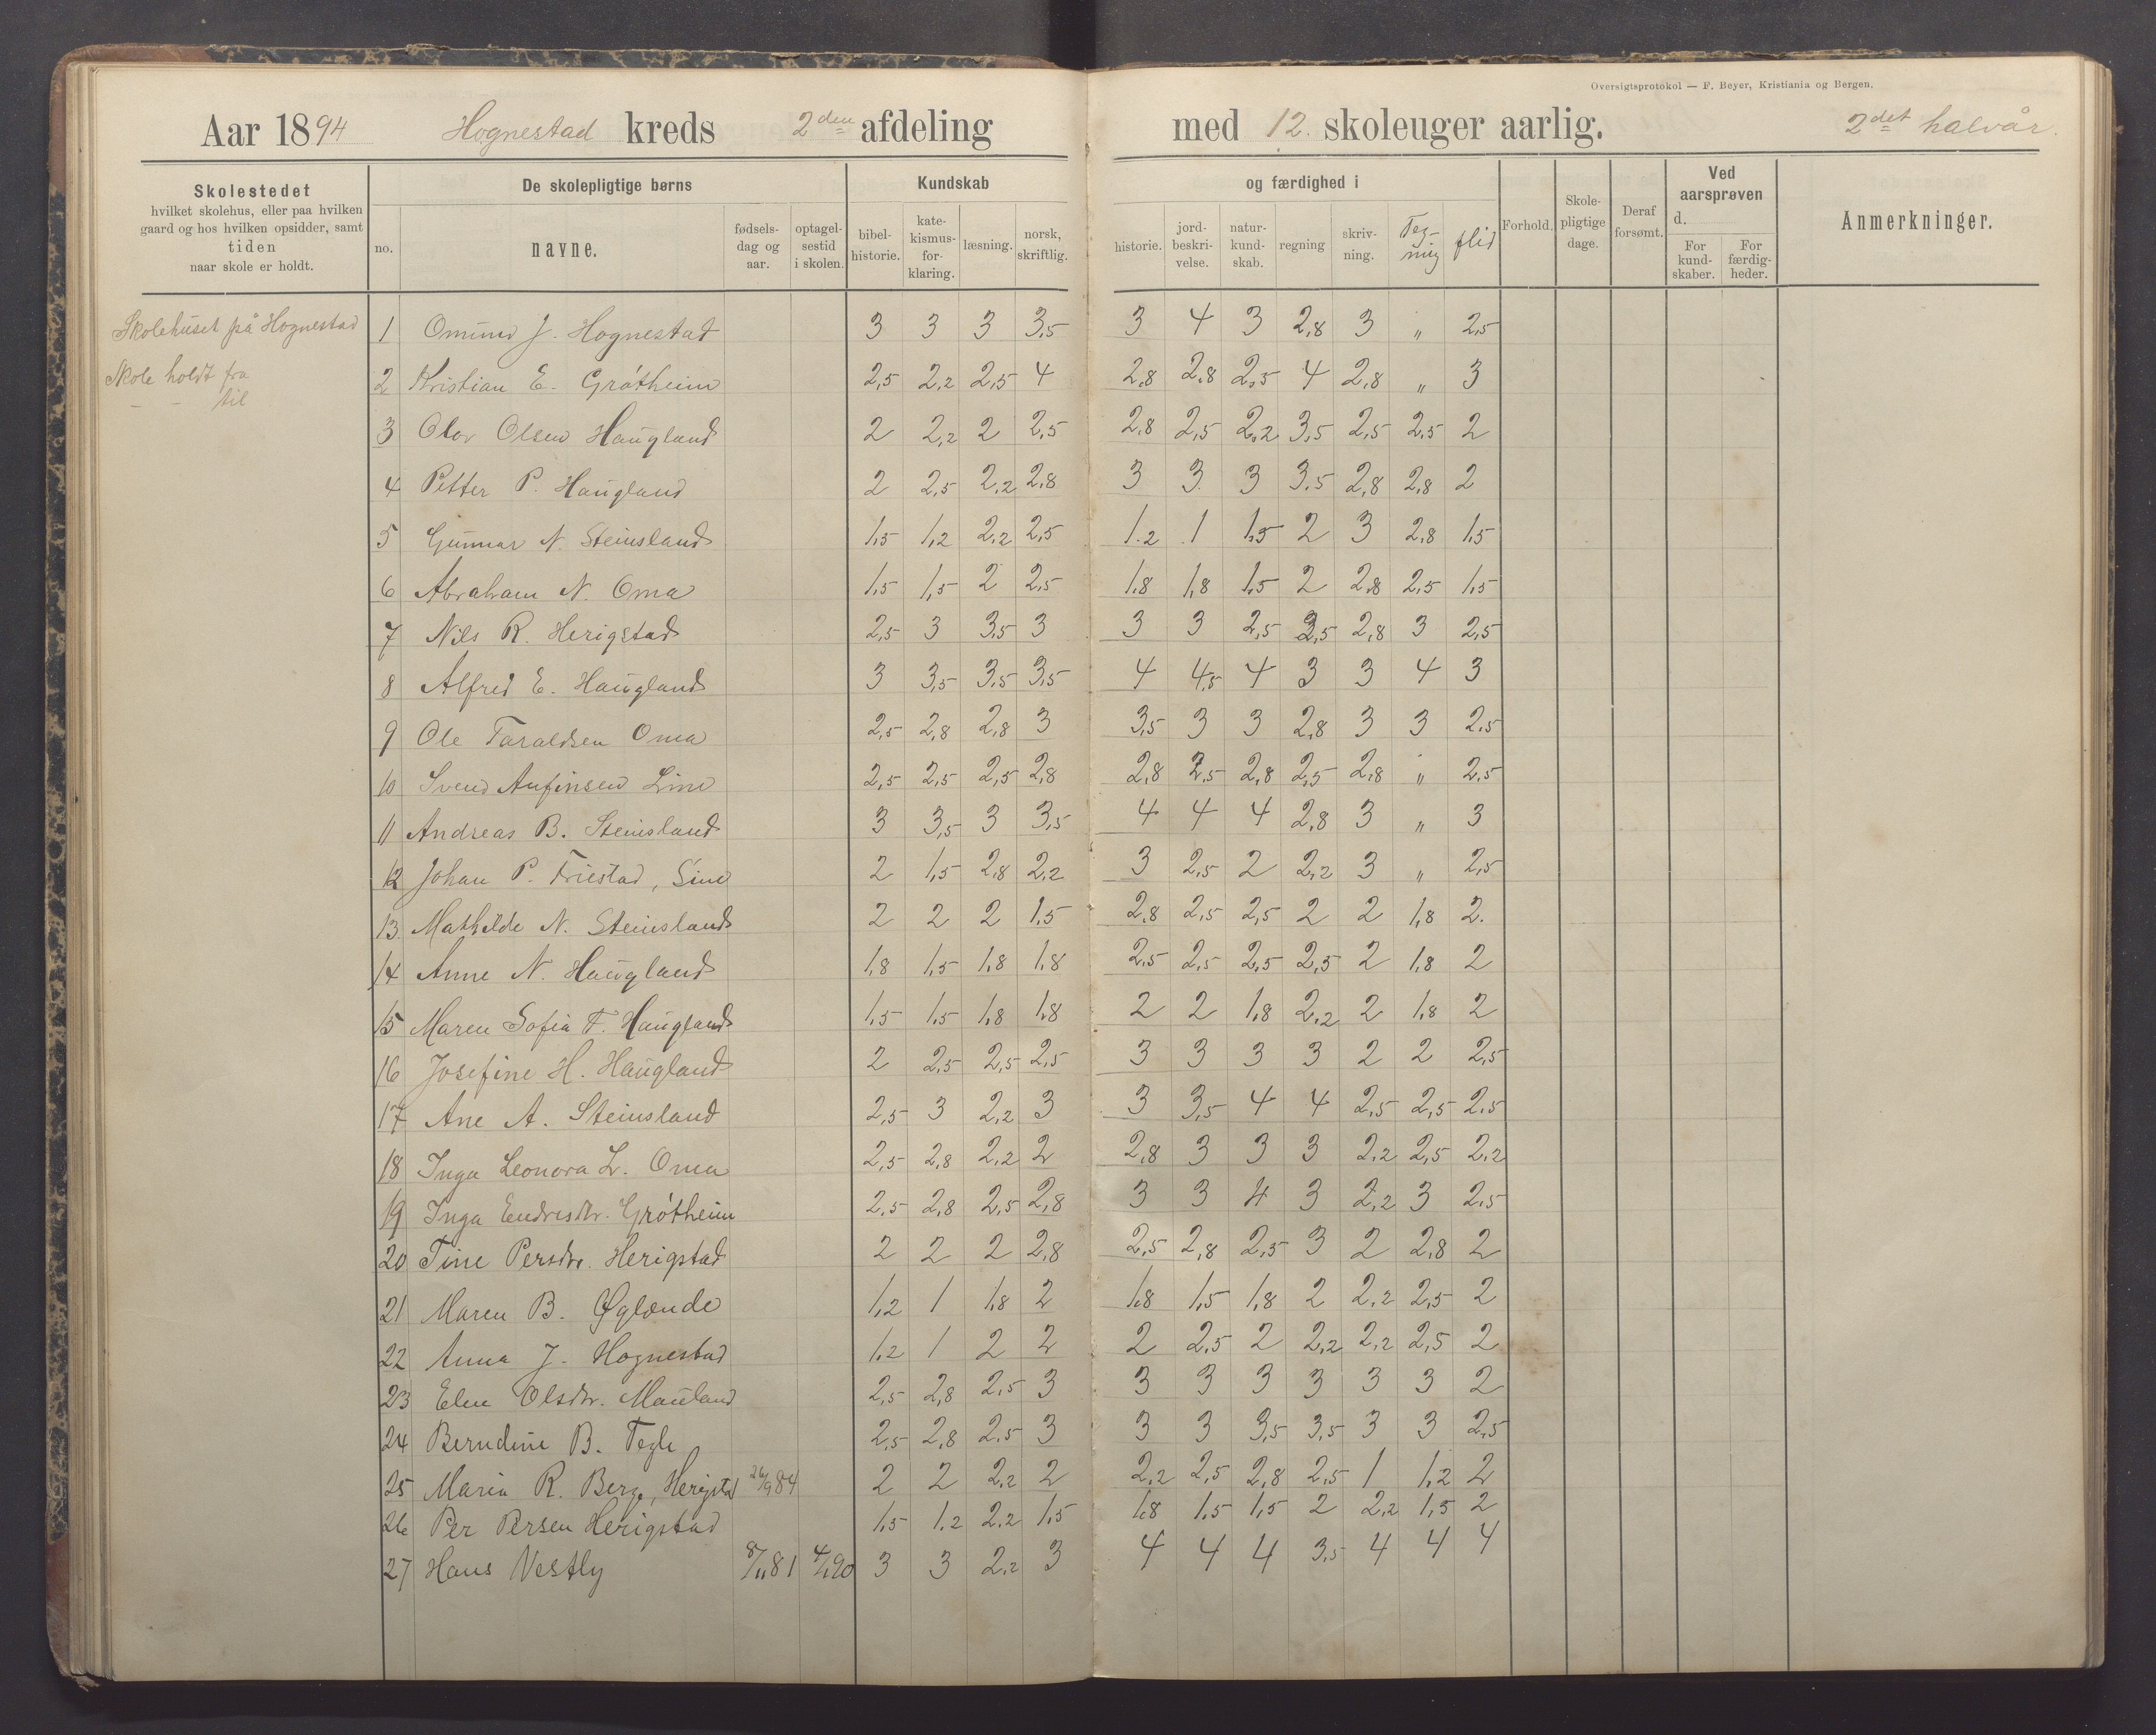 Oversigtsprotokol — F. Beyer, Kristiania og Bergen.
Aar 1894 Hognestad kreds 2den afdeling med 12. skoleuger aarlig. 2det halvår.
Skolestedet
hvilket skolehus, eller paa hvilken
gaard og hos hvilken opsidder, samt
tiden
naar skole er holdt.
De skolepligtige børns
no.
navne.
fødsels-
dag og
aar.
optagel-
sestid
i skolen.
Kundskab
bibel-
historie.
kate-
kismus-
for-
klaring.
læsning.
norsk,
skriftlig.
og færdighed i
historie.
jord-
beskri-
velse.
natur-
kund-
skab.
regning
skriv-
ning.
Teg-
ning
flid
Forhold.
Skole-
pligtige
dage.
Deraf
forsømt.
Ved
aarsprøven
d.
For
kund-
skaber.
For
færdig-
heder.
Anmerkninger.
Skolehuset på Hognestad
Skole holdt fra
— — til
1 Omund J. Hognestad 3 3 3 3,5 3 4 3 2,8 3 " 2,5
2 Kristian E. Grótheim 2,5 2,2 2,5 4 2,8 2,8 2,5 4 2,8 " 3
3 Olav Olsen Haugland 2 2,2 2 2,5 2,8 2,5 2,2 3,5 2,5 2,5 2
4 Petter P. Haugland 2 2,5 2,2 2,8 3 3 3 3,5 2,8 2,8 2
5 Gunnar N. Steinsland 1,5 1,2 2,2 2,5 1,2 1 1,5 2 3 2,8 1,5
6 Abraham N. Oma 1,5 1,5 2 2,5 1,8 1,8 1,5 2 2,8 2,5 1,5
7 Nils R. Herigstad 2,5 3 3,5 3 3 3 2,5 2,5 2,8 3 2,5
8 Alfred E. Haugland 3 3,5 3,5 3,5 4 4,5 4 3 3 4 3
9 Ole Taraldsen Oma 2,5 2,8 2,8 3 3,5 3 3 2,8 3 3 2,5
10 Svend Anfinsen Line 2,5 2,5 2,5 2,8 2,8 2,5 2,8 2,5 2,8 " 2,5
11 Andreas B. Steinsland 3 3,5 3 3,5 4 4 4 2,8 3 " 3
12 Johan P. Friestad, Line 2 1,5 2,8 2,2 3 2,5 2 2,2 3 " 2,5
13. Mathilde N. Steinsland 2 2 2 1,5 2,8 2,5 2,5 2 2 1,8 2.
14 Anne N. Haugland 1,8 1,5 1,8 1,8 2,5 2,5 2,5 2,5 2 1,8 2
15 Maren Sofia T. Haugland 1,5 1,5 1,8 1,8 2 2 1,8 2,2 2 1,8 2
16 Josefine H. Haugland 2 2,5 2,5 2,5 3 3 3 3 2 2 2,5
17 Ane A. Steinsland 2,5 3 2,2 3 3 3,5 4 4 2,5 2,5 2,5
18 Inga Leonora L. Oma 2,5 2,8 2,2 2 2,8 3 3 3 2,2 2,5 2,2
19 Inga Endresdtr. Grótheim 2,5 2,8 2,5 2,8 3 3 4 3 2,2 3 2,5
20 Tine Persdtr. Herigstad 2 2 2 2,8 2,5 2,8 2,5 3 2 2,8 2
21 Maren B. Øglænde 1,2 1 1,8 2 1,8 1,5 1,8 2 2,2 2,5 2
22 Anna J. Hognestad 1,2 1 2 2 2 2,5 2 2,2 2,2 2,5 2
23 Elen Olsdtr. Mauland 2,5 2,8 2,5 3 3 3 3 3 3 3 2
24 Berndine B. Tegle 2,5 2,8 2,5 3 3 3 3,5 3,5 3 3 2,5
25 Maria R. Berge, Herigstad 26/9 84 2 2 2,2 2 2,2 2,5 2,8 2,5 1 1,2 2
26 Per Persen Herigstad 1,5 1,2 2,2 1,5 1,8 1,5 1,5 2 2,2 1,5 2
27 Hans Vestly 8/11 81 4/1 90 3 3 2,2 3 4 4 4 3,5 4 4 4